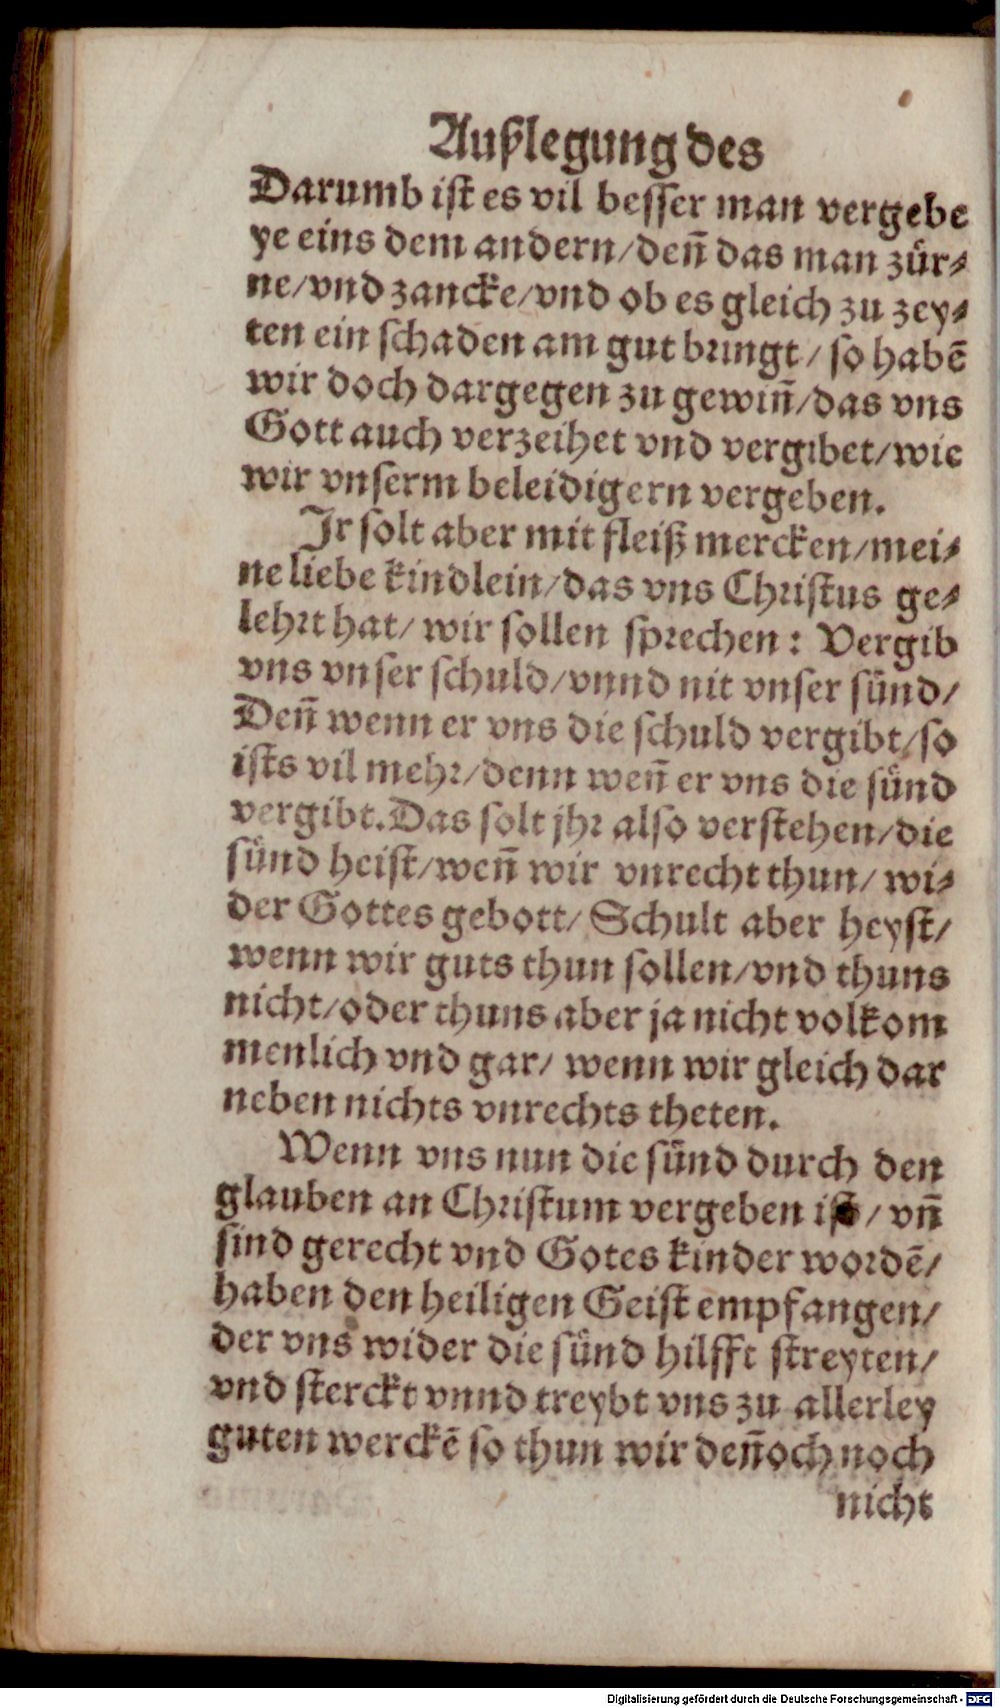 Außlegung des
Darumb ist es vil besser man vergebe
ye eins dem andern/deñ das man zür⸗
ne/vnd zancke/vnd ob es gleich zu zey⸗
ten ein schaden am gut bringt/ so habē
wir doch dargegen zu gewiñ/das vns
Gott auch verzeihet vnd vergibet/wie
wir vnserm beleidigern vergeben.
Jr solt aber mit fleiß mercken/mei⸗
ne liebe kindlein/das vns Christus ge⸗
lehrt hat/ wir sollen sprechen: Vergib
vns vnser schuld/vnnd nit vnser sünd/
Deñ wenn er vns die schuld vergibt/so
ists vil mehr/denn weñ er vns die sünd
vergibt.Das solt jhr also verstehen/die
sünd heist/weñ wir vnrecht thun/ wi⸗
der Gottes gebott/ Schult aber heyst/
wenn wir guts thun sollen/vnd thuns
nicht/oder thuns aber ja nicht volkom
menlich vnd gar/ wenn wir gleich dar
neben nichts vnrechts theten.
Wenn vns nun die sünd durch den
glauben an Christum vergeben ist/ vñ
sind gerecht vnd Gotes kinder wordē/
haben den heiligen Geist empfangen/
der vns wider die sünd hilfft streyten/
vnd sterckt vnnd treybt vns zu allerley
guten werckē so thun wir deñoch noch
nicht
Digitalisierung gefördert durch die Deutsche Forschungsgemeinschaft - DFG